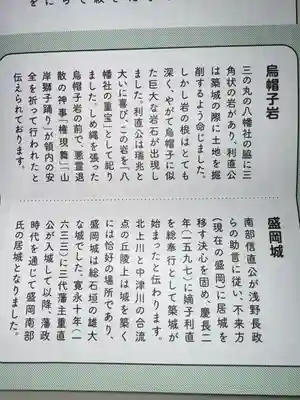 烏帽子岩
三の丸の八幡社の脇に三
角状の岩があり、利直公
は築城の際に土地を掘
削するよう命じました。
しかし岩の根はとても
深く、やがて烏帽子に似
た巨大な岩石が出現し
ました。利直公は瑞兆と
大いに喜び、この岩を「八
幡社の重宝」として祀り
ました。しめ縄を張った
烏帽子岩の前で、悪霊退
散の神事「権現舞」「山
岸獅子踊り」が領内の安
全を祈って行われたと
伝えられております。
盛岡城
南部信直公が浅野長政
らの助言に従い、不来方
(現在の盛岡)に居城を
移す決心を固め、慶長二
年(一五九七)に嫡子利直
を総奉行として築城が
始まったと伝わります。
北上川と中津川の合流
点の丘陵上は城を築く
には恰好の場所であり、
盛岡城は総石垣の雄大
な城でした。寛永十年(一
六三三)に三代藩主重直
公が入城して以降、藩政
時代を通じて盛岡南部
氏の居城となりました。